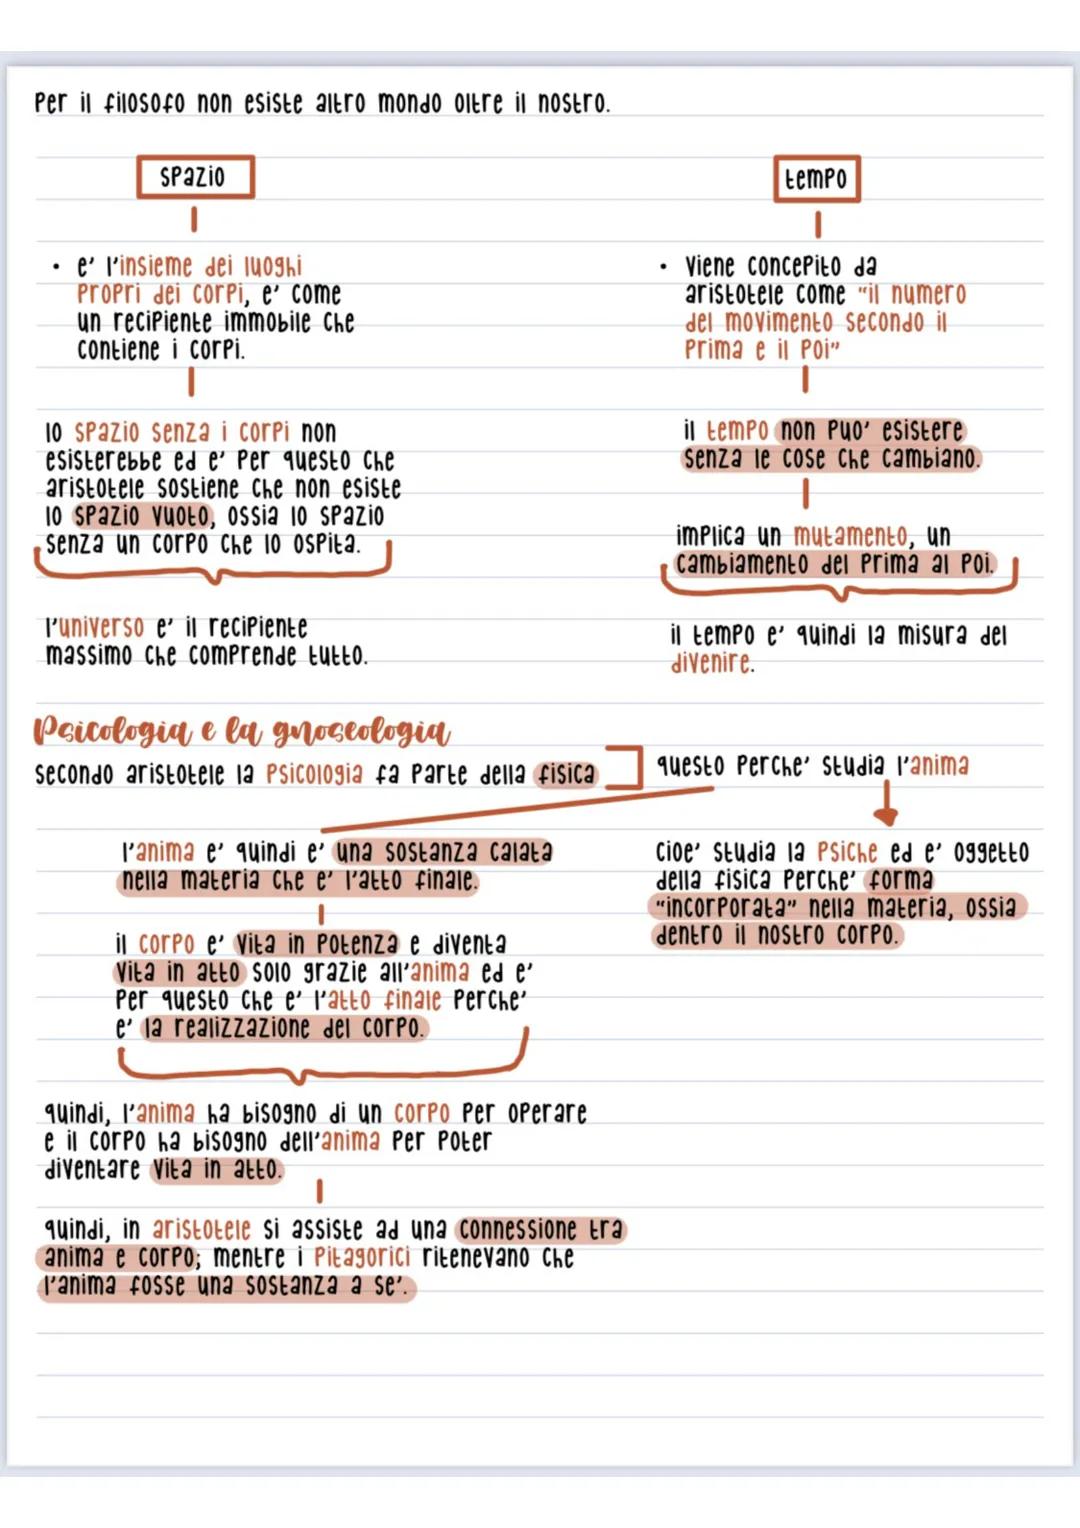 Per il filosofo non esiste altro mondo oltre il nostro.
spazio
e' l'insieme dei luoghi
propri dei corpi, e' come
un recipiente immobile che
contiene i corpi.
lo spazio senza i corpi non
esisterebbe ed e' per questo che
aristotele sostiene che non esiste
lo spazio vuoto, ossia lo spazio
senza un corpo che lo ospita.
l'universo e' il recipiente
massimo che comprende tutto.
tempo
Viene concepito da
aristotele come "il numero
del movimento secondo il
prima e il poi"
il tempo non puo' esistere
senza le cose che cambiano.
implica un mutamento, un
cambiamento del prima al poi.
il tempo e' quindi la misura del
divenire.
Psicologia e la gnoseologia
secondo aristotele la psicologia fa parte della fisica
questo perche' studia l'anima
l'anima e' quindi e' una sostanza calata
nella materia che e' l'atto finale.
il corpo e' vita in potenza e diventa
vita in atto solo grazie all'anima ed e'
per questo che e' l'atto finale perche'
e' la realizzazione del corpo.
cioe' studia la psiche ed e' oggetto
della fisica perche' forma
"incorporata" nella materia, ossia
dentro il nostro corpo.
quindi, l'anima ha bisogno di un corpo per operare
e il corpo ha bisogno dell'anima per poter
diventare vita in atto.
quindi, in aristotele si assiste ad una connessione tra
anima e corpo; mentre i pitagorici ritenevano che
l'anima fosse una sostanza a se'.